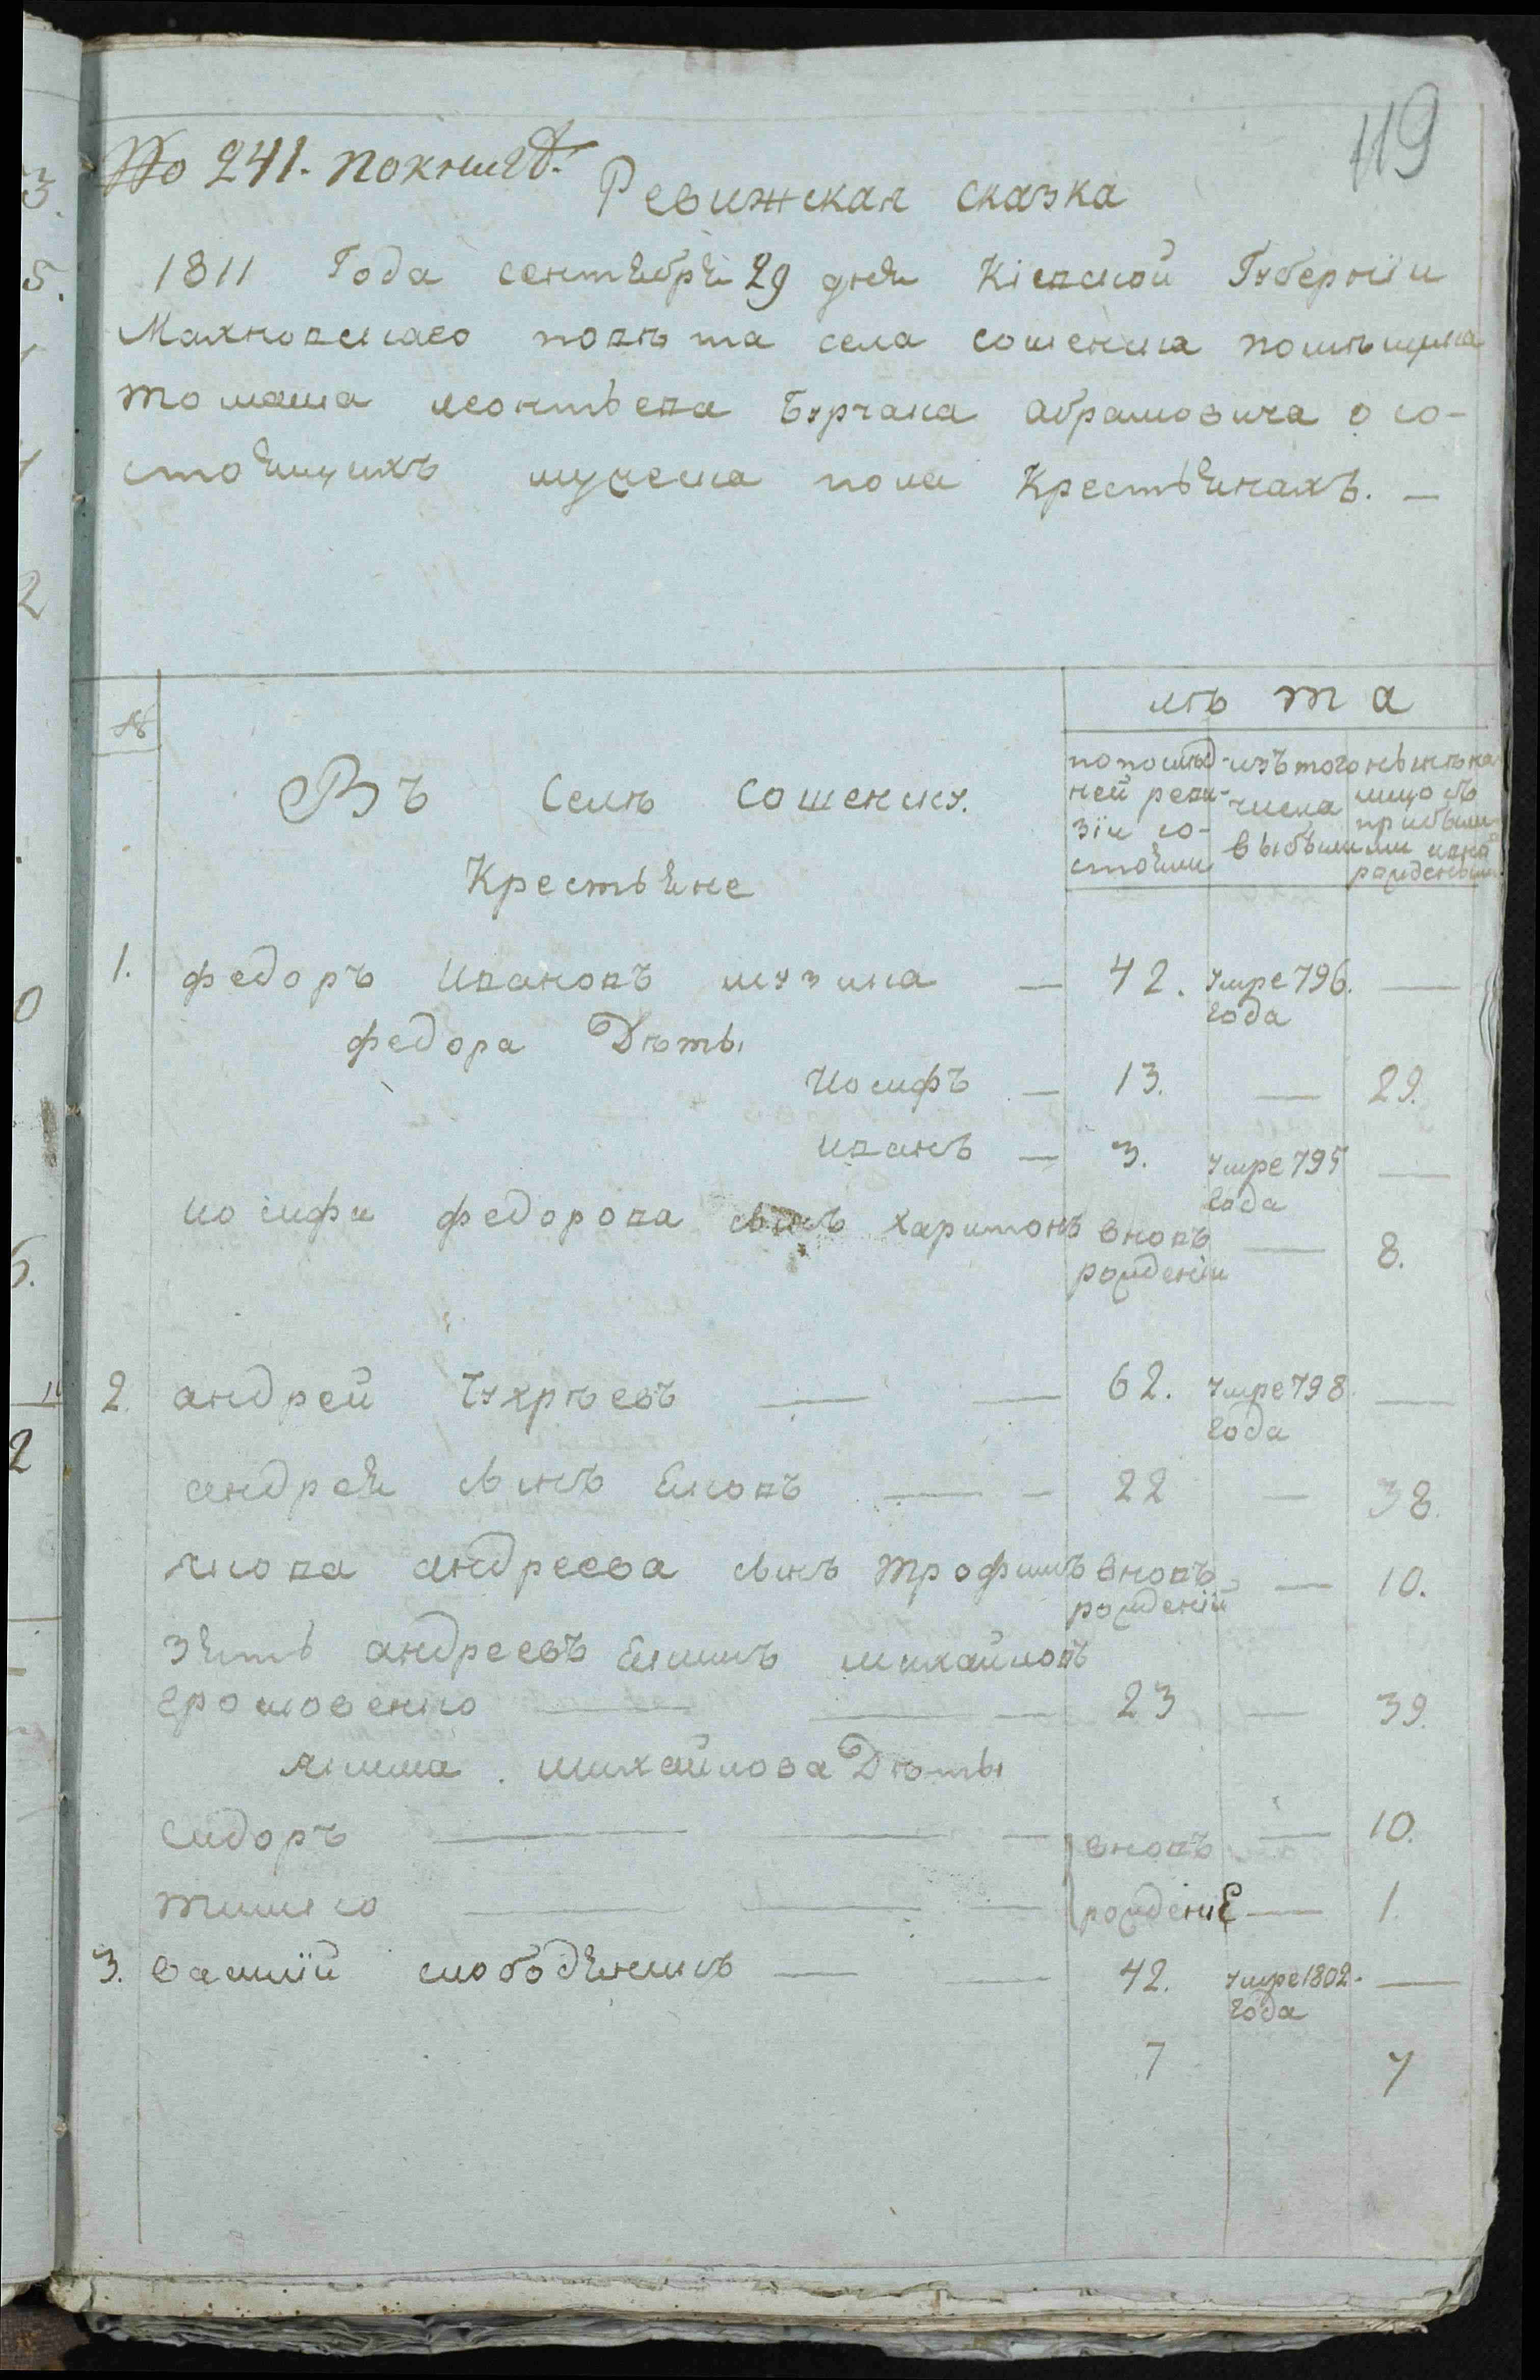 119
No 241. по книгѣ.
Ревижская сказка
1811 Года сентября 29 дня Кіевской Губерніи
Махновскаго повѣта села сошенска помѣщика
томаша леонтьева Бурчака абрамовича о со-
стоящихъ мужеска пола Крестьянахъ. —
№
лѣта
Въ Селѣ сошенску.
Крестьяне
по послѣд-
ней реви-
зіи со-
стояли
изъ того
числа
выбыли
нынѣ на
лицо съ
прибыли-
ми и вно
рожденыи
1. федоръ ивановъ музика — 42. умре 796. —
года
федора Дѣты
иосифъ — 13. — 29.
иванъ — 3. умре 795 —
года
иосифа федорова сынъ харитонъ вновъ — 8.
рожденіи
2. андрей Чухрѣевъ — — 62. умре 798 —
года
андрея сынъ яковъ — — 22 — 38.
якова андреева сынъ трофимъ вновъ — 10.
рожденій
зять андреевъ якимъ михайловъ
громовенко — — — 23 — 39.
якима михайлова Дѣты
сидоръ — — — вновъ — 10.
тимко — — — рожденіе — 1.
3. василій слободяникъ — — 42. умре 1802. —
года
7 7